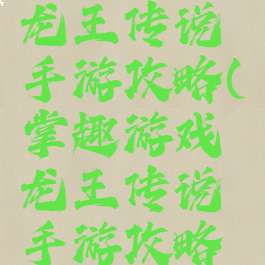 龙王传说
手游攻略(
掌趣游戏
龙王传说
手游攻略